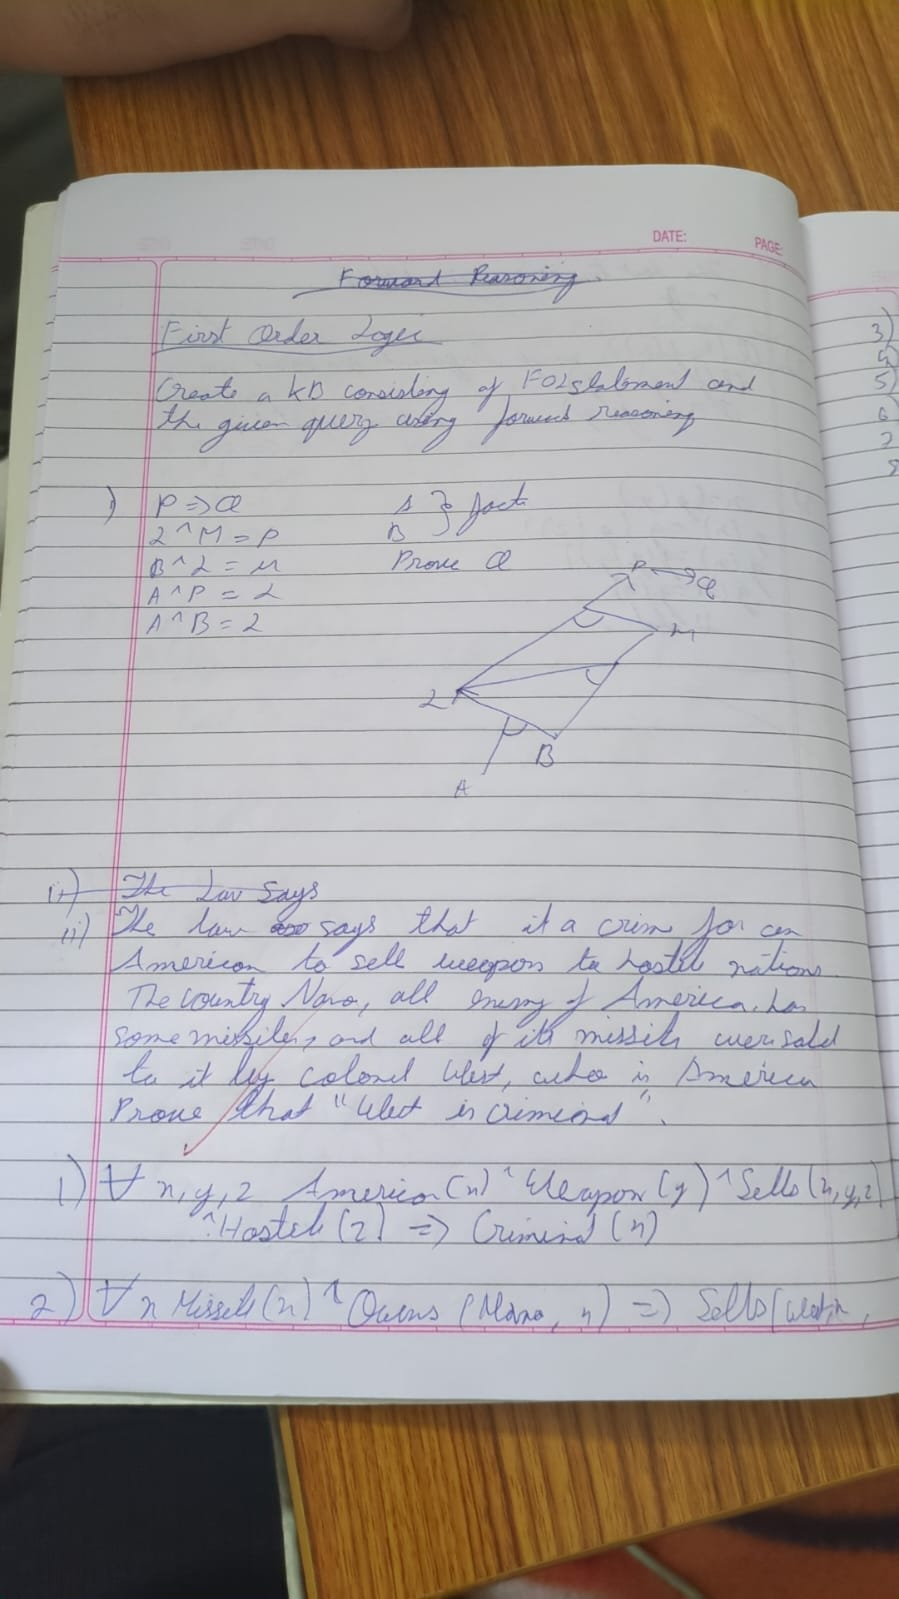 DATE:
PAGE:
Forward Reasoning
First Order Logic
Create a KB consisting of FOL statement and
the given query using forward reasoning
i) P => Q
L ^ M = P
B ^ L = M
A ^ P = L
A ^ B = L
A } fact
B
Prove Q
P Q
M
L
B
A
ii) The Law Says
ii) The law says that it a crim for an
American to sell weapon to hostil nations.
The country Nono, all enemy of America, has
some missiles, and all of its missils were sold
to it by colonel West, who is America
Prove that "West is criminal".
1) ∀ x, y, z American(x) ^ Weapon(y) ^ Sells(x, y, z)
^ Hostile(z) => Criminal(x)
2) ∀ x Missile(x) ^ Owns (Nono, x) => Sells(West, x,
3)
4)
5)
6)
7